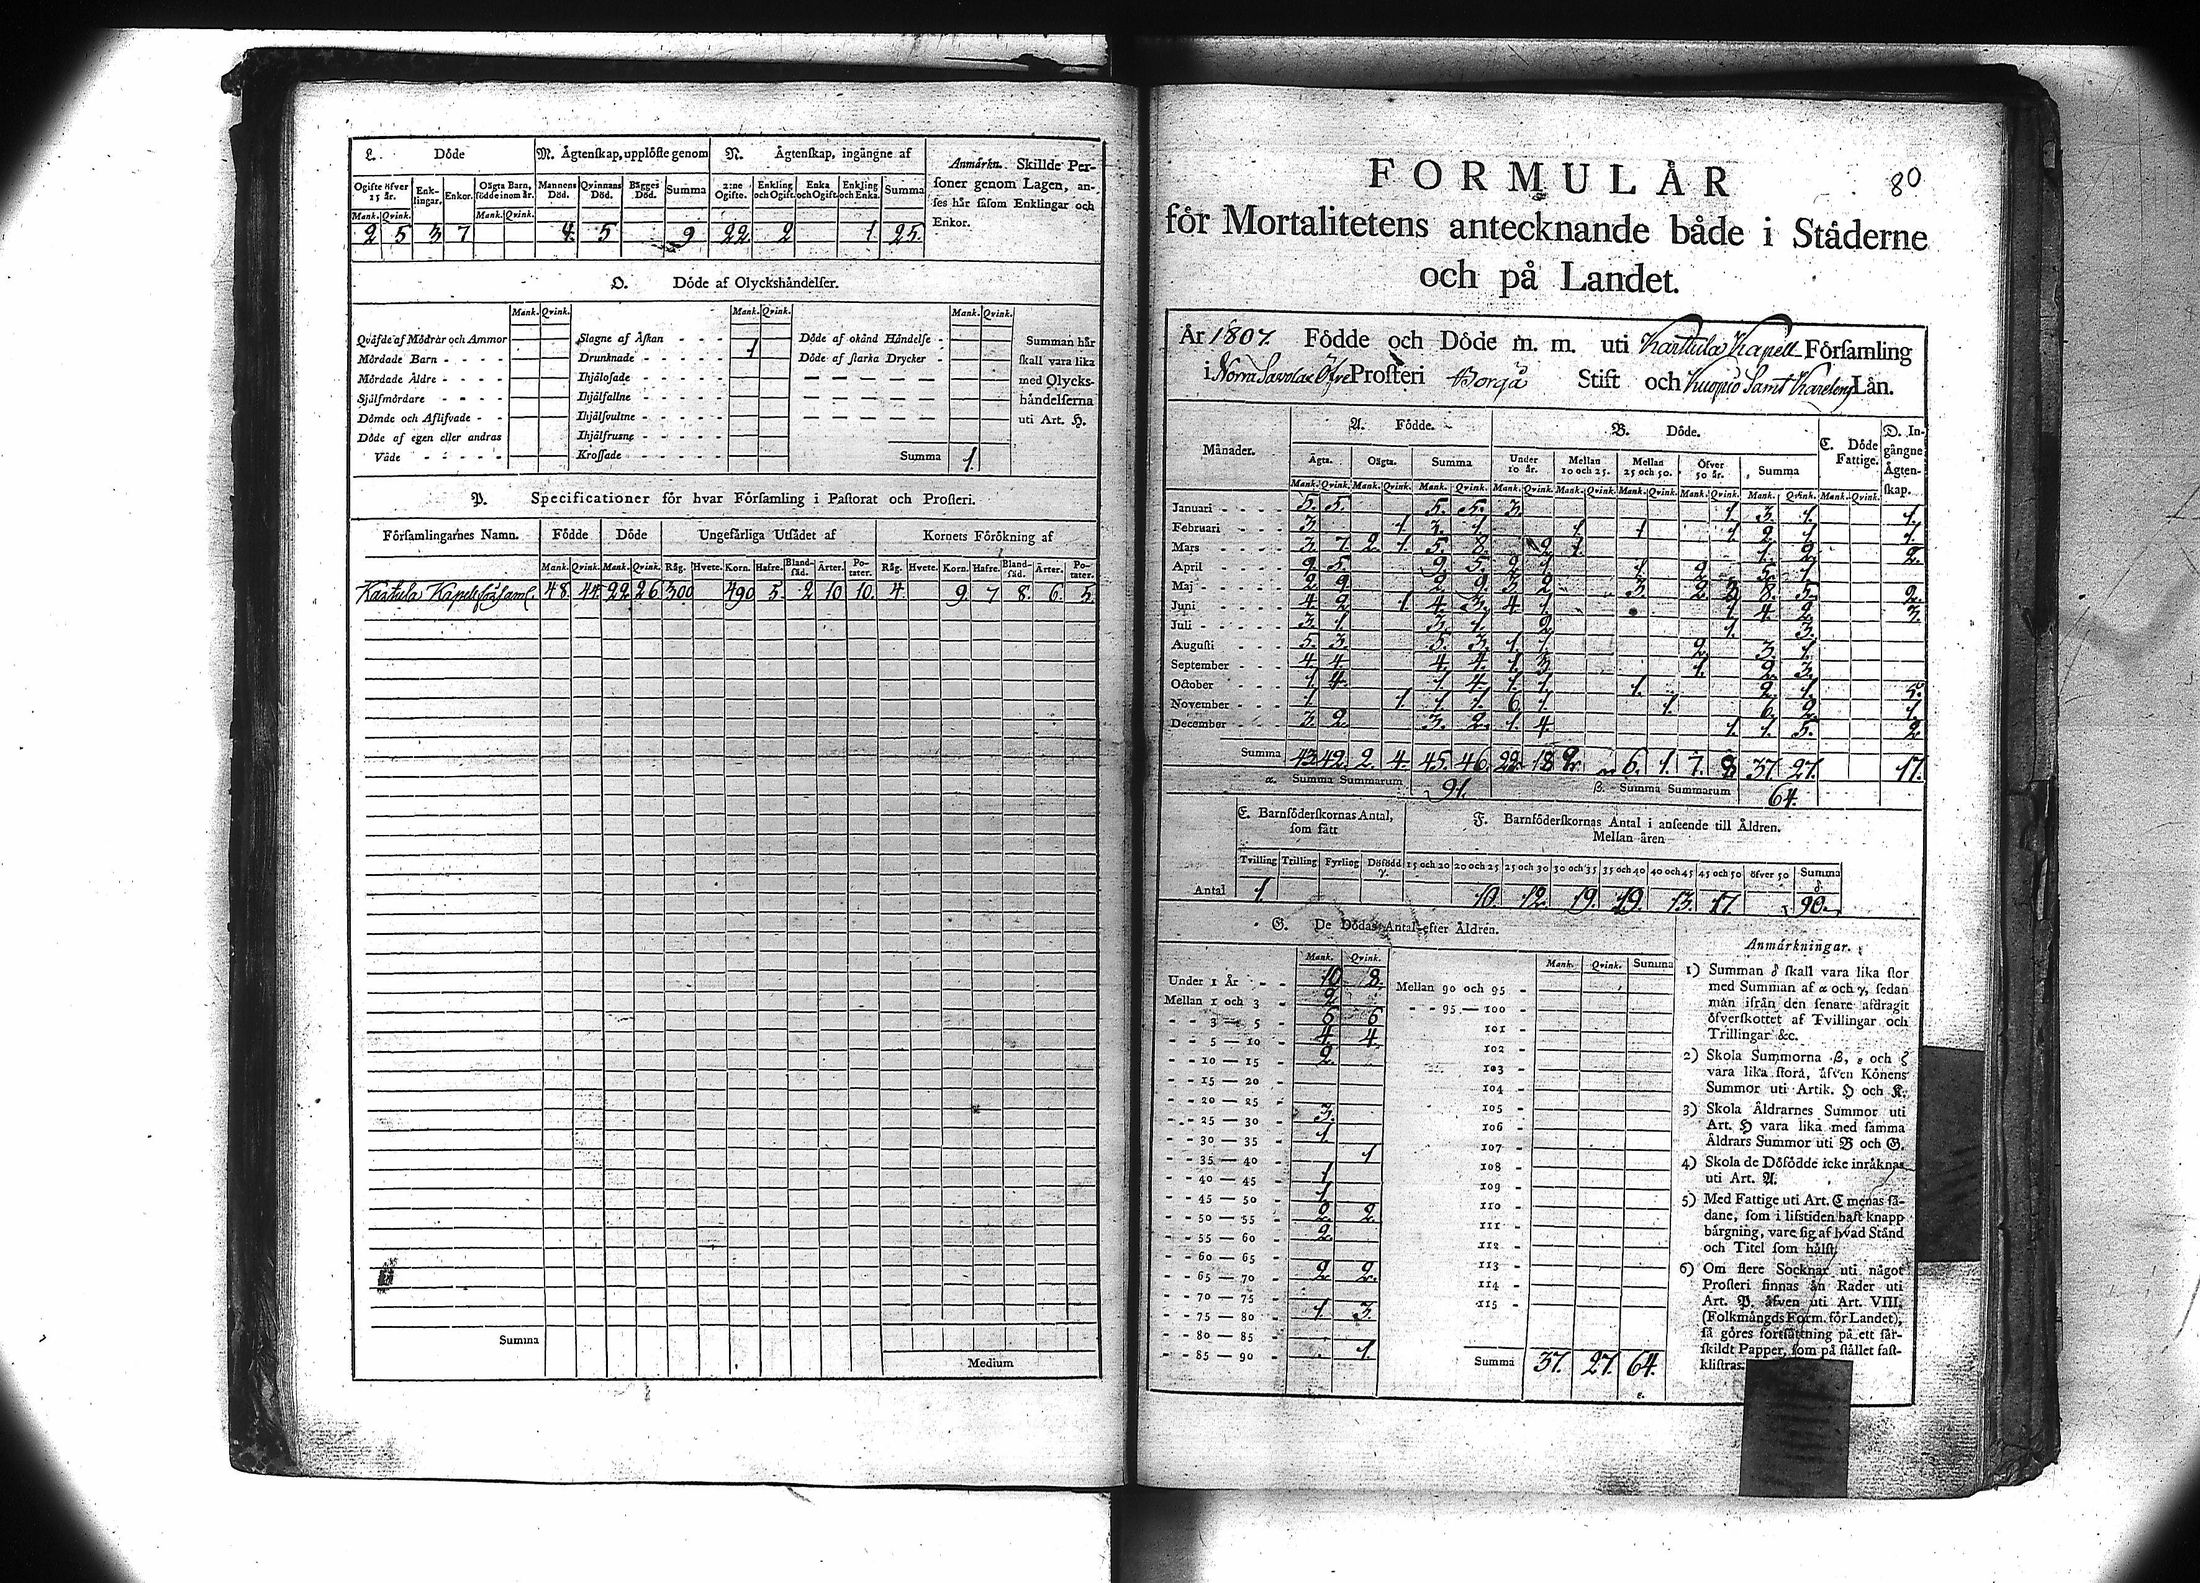 L. Döde
M. Ägtenskap, upplöste genom
N. Ägtenskap, ingångne af
Anmärkn. Skillde Personer genom Lagen, anses här såsom Enklingar och Enkor.
Ogifte öfver 15 år. Enklingar. Enkor. Oägta Barn, födde inom år. Mannens Död. Qvinnans Död. Bägges Död. Summa 2:ne Ogifte. Enkling och Ogift. Enka och Ogift. Enkling och Enka. Summa
Mank. Qvink. Mank. Qvink.
2 5 3 7 4. 5 9 22 2 1 25.
O. Döde af Olyckshändelser.
Mank. Qvink. Mank. Qvink. Mank. Qvink.
Qväfde af Mödrar och Ammor Slagne af Åskan - - - Döde af okänd Händelse - Summan här
Mördade Barn - - - - Drunknade - - - - - 1 Döde af starka Drycker - skall vara lika
Mördade Äldre - - - - Ihjälosade - - - - med Olycks-
Sjålfmördare - - - - Ihjälfallne - - - - händelserna
Dömde och Aflifvade - - Ihjälsvultne - - - - uti Art. H.
Döde af egen eller andras Ihjälfrusne - - - -
Våde - - - - - Krossade - - - - Summa 1.
P. Specificationer för hvar Församling i Pastorat och Prosteri.
Församlingarnes Namn. Födde Döde Ungefärliga Utsädet af Kornets Förökning af
Mank. Qvink. Mank. Qvink. Råg. Hvete. Korn. Hafre. Blandsäd. Ärter. Potater. Råg. Hvete. Korn. Hafre. Blandsäd. Ärter. Potater.
Karttula Kapellsförsaml. 48. 44. 22 26 300 490 5. 2 10 10. 4. 9. 7 8. 6. 5.
Summa
Medium
80
FORMULÄR
för Mortalitetens antecknande både i Städerne
och på Landet.
År 1807. Födde och Döde m. m. uti Karttula Kapell Församling
i Norra Savolax Öfre Prosteri Borgå Stift och Kuopio Samt Karelens Län.
Månader. A. Födde. B. Döde. C. Döde Fattige. D. Ingångne Ägtenskap.
Ägta. Oägta. Summa Under 10 år. Mellan 10 och 25. Mellan 25 och 50. Öfver 50 år. Summa
Mank. Qvink. Mank. Qvink. Mank. Qvink. Mank. Qvink. Mank. Qvink. Mank. Qvink. Mank. Qvink. Mank. Qvink. Mank. Qvink.
Januari - - - - 5. 5. 5. 5. 3. 1. 3. 1. 1.
Februari - - - 3. 1. 3. 1. 1 1 1 2 1 1.
Mars - - - - 3. 7. 2. 1. 5. 8. 2 1. 1. 2 2.
April - - - - 9 5. 9. 5. 2 1. 1. 2 5. 1
Maj - - - - 2 9. 2 9. 3 2 3. 2 3 8. 5. 2.
Juni - - - - 4 2 1 4. 3. 4 1. 1 4. 2 3.
Juli - - - - 3. 1. 3. 1. 2 1. 3.
Augusti - - 5. 3. 5. 3. 1. 1. 2 3. 1.
September - - - 4. 4 4. 4. 1. 3. 1. 2 3.
October - - - 1. 4. 1 4. 1. 1. 1. 2. 1. 5.
November - - - 1. 1. 1 1. 6. 1. 1. 6. 2 1.
December - - - 3. 2. 3. 2. 1. 4. 1. 1. 5. 2
Summa 43 42. 2. 4. 45. 46. 22. 18 2. 6. 1. 7. 8 37 27. 17.
α. Summa Summarum 91. β. Summa Summarum 64.
E. Barnföderskornas Antal, som fått
F. Barnföderskornas Antal i anseende till Åldren.
Mellan åren
Tvilling Trilling Fyrling Dödfödd γ. 15 och 20 20 och 25 25 och 30 30 och 35 35 och 40 40 och 45 45 och 50 öfver 50 Summa δ.
Antal 1. 10. 12. 19. 19. 13. 17. 90.
G. De Dödas Antal efter Åldren.
Mank. Qvink. Mank. Qvink. Summa
Under 1 År - - 10 8. Mellan 90 och 95 -
Mellan 1 och 3 - 2 - - 95 — 100 -
- - 3 — 5 - 6 6 101 -
- - 5 — 10 - 4. 4. 102 -
- - 10 — 15 - 2. 103 -
- - 15 — 20 - 104 -
- - 20 — 25 - 105 -
- - 25 — 30 - 3. 106 -
- - 30 — 35 - 1. 107 -
- - 35 — 40 - 1 108 -
- - 40 — 45 - 1 109 -
- - 45 — 50 - 1. 110 -
- - 50 — 55 - 2. 2. 111 -
- - 55 — 60 - 2. 112 -
- - 60 — 65 - 113 -
- - 65 — 70 - 2 2. 114 -
- - 70 — 75 - 115 -
- - 75 — 80 - 1. 3.
- - 80 — 85 -
- - 85 — 90 - 1. Summa 37. 27. 64.
ε.
Anmärkningar.
1) Summan δ skall vara lika stor
med Summan af α och γ, sedan
man ifrån den senare afdragit
öfverskottet af Tvillingar och
Trillingar &c.
2) Skola Summorna β, ε och ζ
vara lika stora, äfven Könens
Summor uti Artik. H och K.
3) Skola Åldrarnes Summor uti
Art. H vara lika med samma
Åldrars Summor uti B och G.
4) Skola de Döfödde icke inräknas
uti Art. A.
5) Med Fattige uti Art. C menas så-
dane, som i lifstiden haft knapp
bärgning, vare sig af hvad Stånd
och Titel som hälst.
6) Om flere Socknar uti något
Prosteri finnas än Rader uti
Art. P. äfven uti Art. VIII.
(Folkmängds Form. för Landet),
så göres fortsättning på ett sär-
skildt Papper, som på stället fast-
klistras.